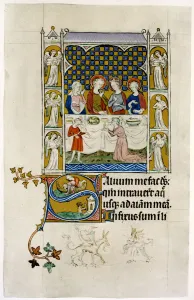 Saluum me fac ds
qm intrauerūt aq̄
usq; ad aīam meā
Infixus sum ī li